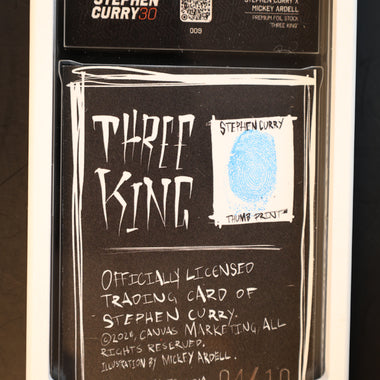 STEPHEN
CURRY30
009
STEPHEN CURRY X
MICKEY ARDELL
PREMIUM FOIL STOCK
"THREE KING"
THREE
KING
STEPHEN CURRY
THUMB PRINT
OFFICIALLY LICENSED
TRADING CARD OF
STEPHEN CURRY.
©2026, CANVAS MARKETING, ALL
RIGHTS RESERVED.
ILLUSTRATION BY MICKEY ARDELL.
04/10